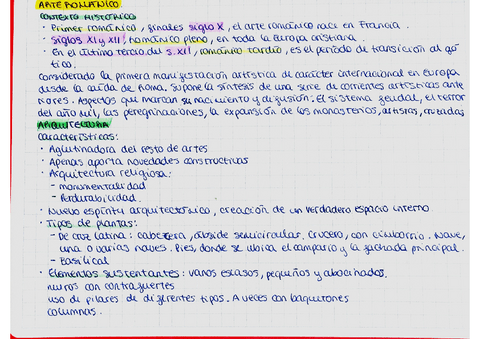 ARTE ROMÁNICO
CONTEXTO HISTÓRICO
· Primer románico, finales siglo X, el arte románico nace en Francia.
· Siglos XI y XII, románico pleno, en toda la Europa cristiana.
· En el último tercio del s.XII, románico tardío, es el período de transición al gó
tico.
Considerado la primera manifestación artística de carácter internacional en Europa
desde la caída de Roma. Supone la síntesis de una serie de corrientes artísticas ante
riores. Aspectos que marcan su nacimiento y difusión: El sistema feudal, el terror
del año mil, las peregrinaciones, la expansión de los monasterios, artistas, cruzadas
ARQUITECTURA
Características:
· Aglutinadora del resto de artes
· Apenas aporta novedades constructivas
· Arquitectura religiosa:
- monumentalidad
- Perdurabilidad.
· Nuevo espíritu arquitectónico, creación de un verdadero espacio interno
· Tipos de plantas:
- De cruz latina: cabecera, ábside semicircular. Crucero, con cimborrio. Nave,
una o varias naves. Pies, donde se ubica el campario y la fachada principal.
- Basilical
· Elementos sustentantes: vanos escasos, pequeños y abocinados.
muros con contrafuertes
uso de pilares de diferentes tipos. A veces con baquetones
columnas.